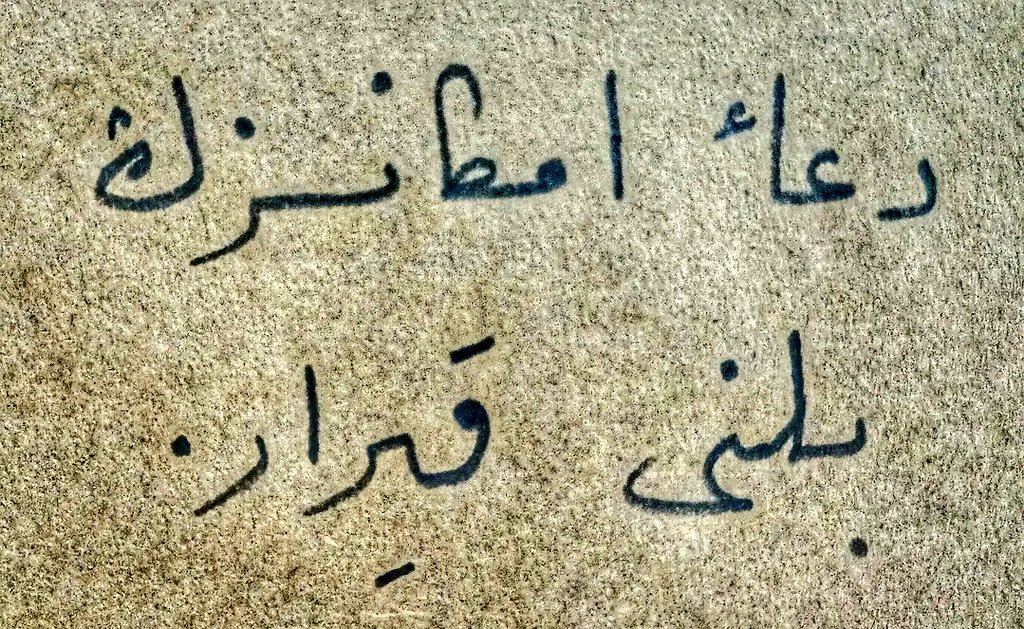 دعاء امطانزك
بلنى قَىِرار.